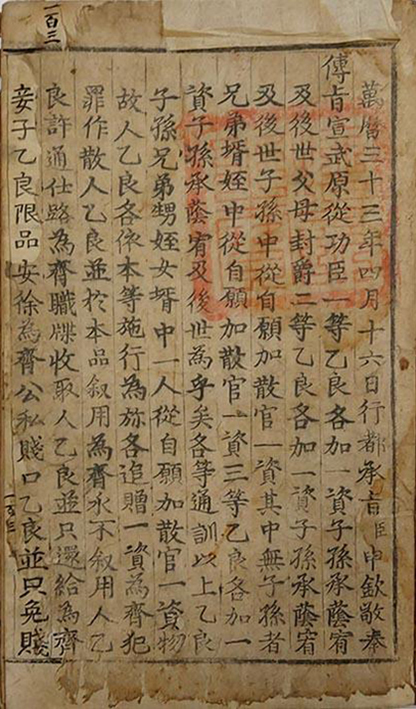 一百三
萬曆三十三年四月十六日行都承旨臣申欽敬奉
傳旨宣武原從功臣一等乙良各加一資子孫承蔭宥
及後世父母封爵二等乙良各加一資子孫承蔭宥
及後世子孫中從自願加散官一資其中無子孫者
兄弟壻姪中從自願加散官一資三等乙良各加一
資子孫承蔭宥及後世為乎矣各等通訓以上乙良
子孫兄弟甥姪女壻中一人從自願加散官一資物
故人乙良各依本等施行為旀各追贈一資為齊犯
罪作散人乙良並於本品叙用為齊永不叙用人乙
良許通仕路為齊職牒收取人乙良並只還給為齊
妾子乙良限品安徐為齊公私賤口乙良並只免賤